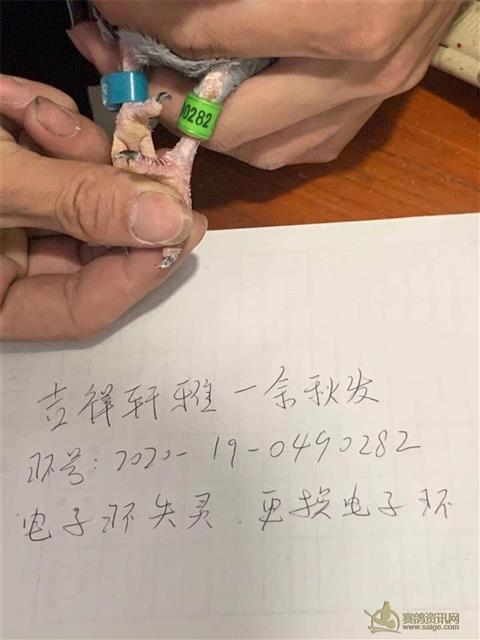 0282
吉祥轩雅一余秋发
环号：2020-19-0490282
电子环失灵.更换电子环
赛鸽资讯网
www.saige.com